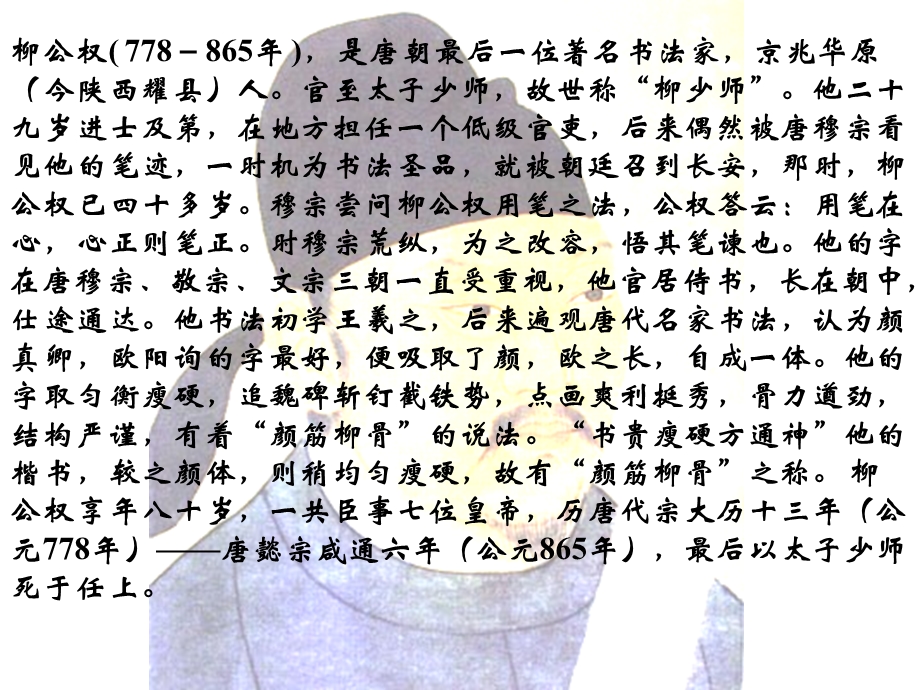 柳公权(778－865年)，是唐朝最后一位著名书法家，京兆华原
（今陕西耀县）人。官至太子少师，故世称“柳少师”。他二十
九岁进士及第，在地方担任一个低级官吏，后来偶然被唐穆宗看
见他的笔迹，一时机为书法圣品，就被朝廷召到长安，那时，柳
公权已四十多岁。穆宗尝问柳公权用笔之法，公权答云：用笔在
心，心正则笔正。时穆宗荒纵，为之改容，悟其笔谏也。他的字
在唐穆宗、敬宗、文宗三朝一直受重视，他官居侍书，长在朝中，
仕途通达。他书法初学王羲之，后来遍观唐代名家书法，认为颜
真卿，欧阳询的字最好，便吸取了颜，欧之长，自成一体。他的
字取匀衡瘦硬，追魏碑斩钉截铁势，点画爽利挺秀，骨力遒劲，
结构严谨，有着“颜筋柳骨”的说法。“书贵瘦硬方通神”他的
楷书，较之颜体，则稍均匀瘦硬，故有“颜筋柳骨”之称。柳
公权享年八十岁，一共臣事七位皇帝，历唐代宗大历十三年（公
元778年）——唐懿宗咸通六年（公元865年），最后以太子少师
死于任上。